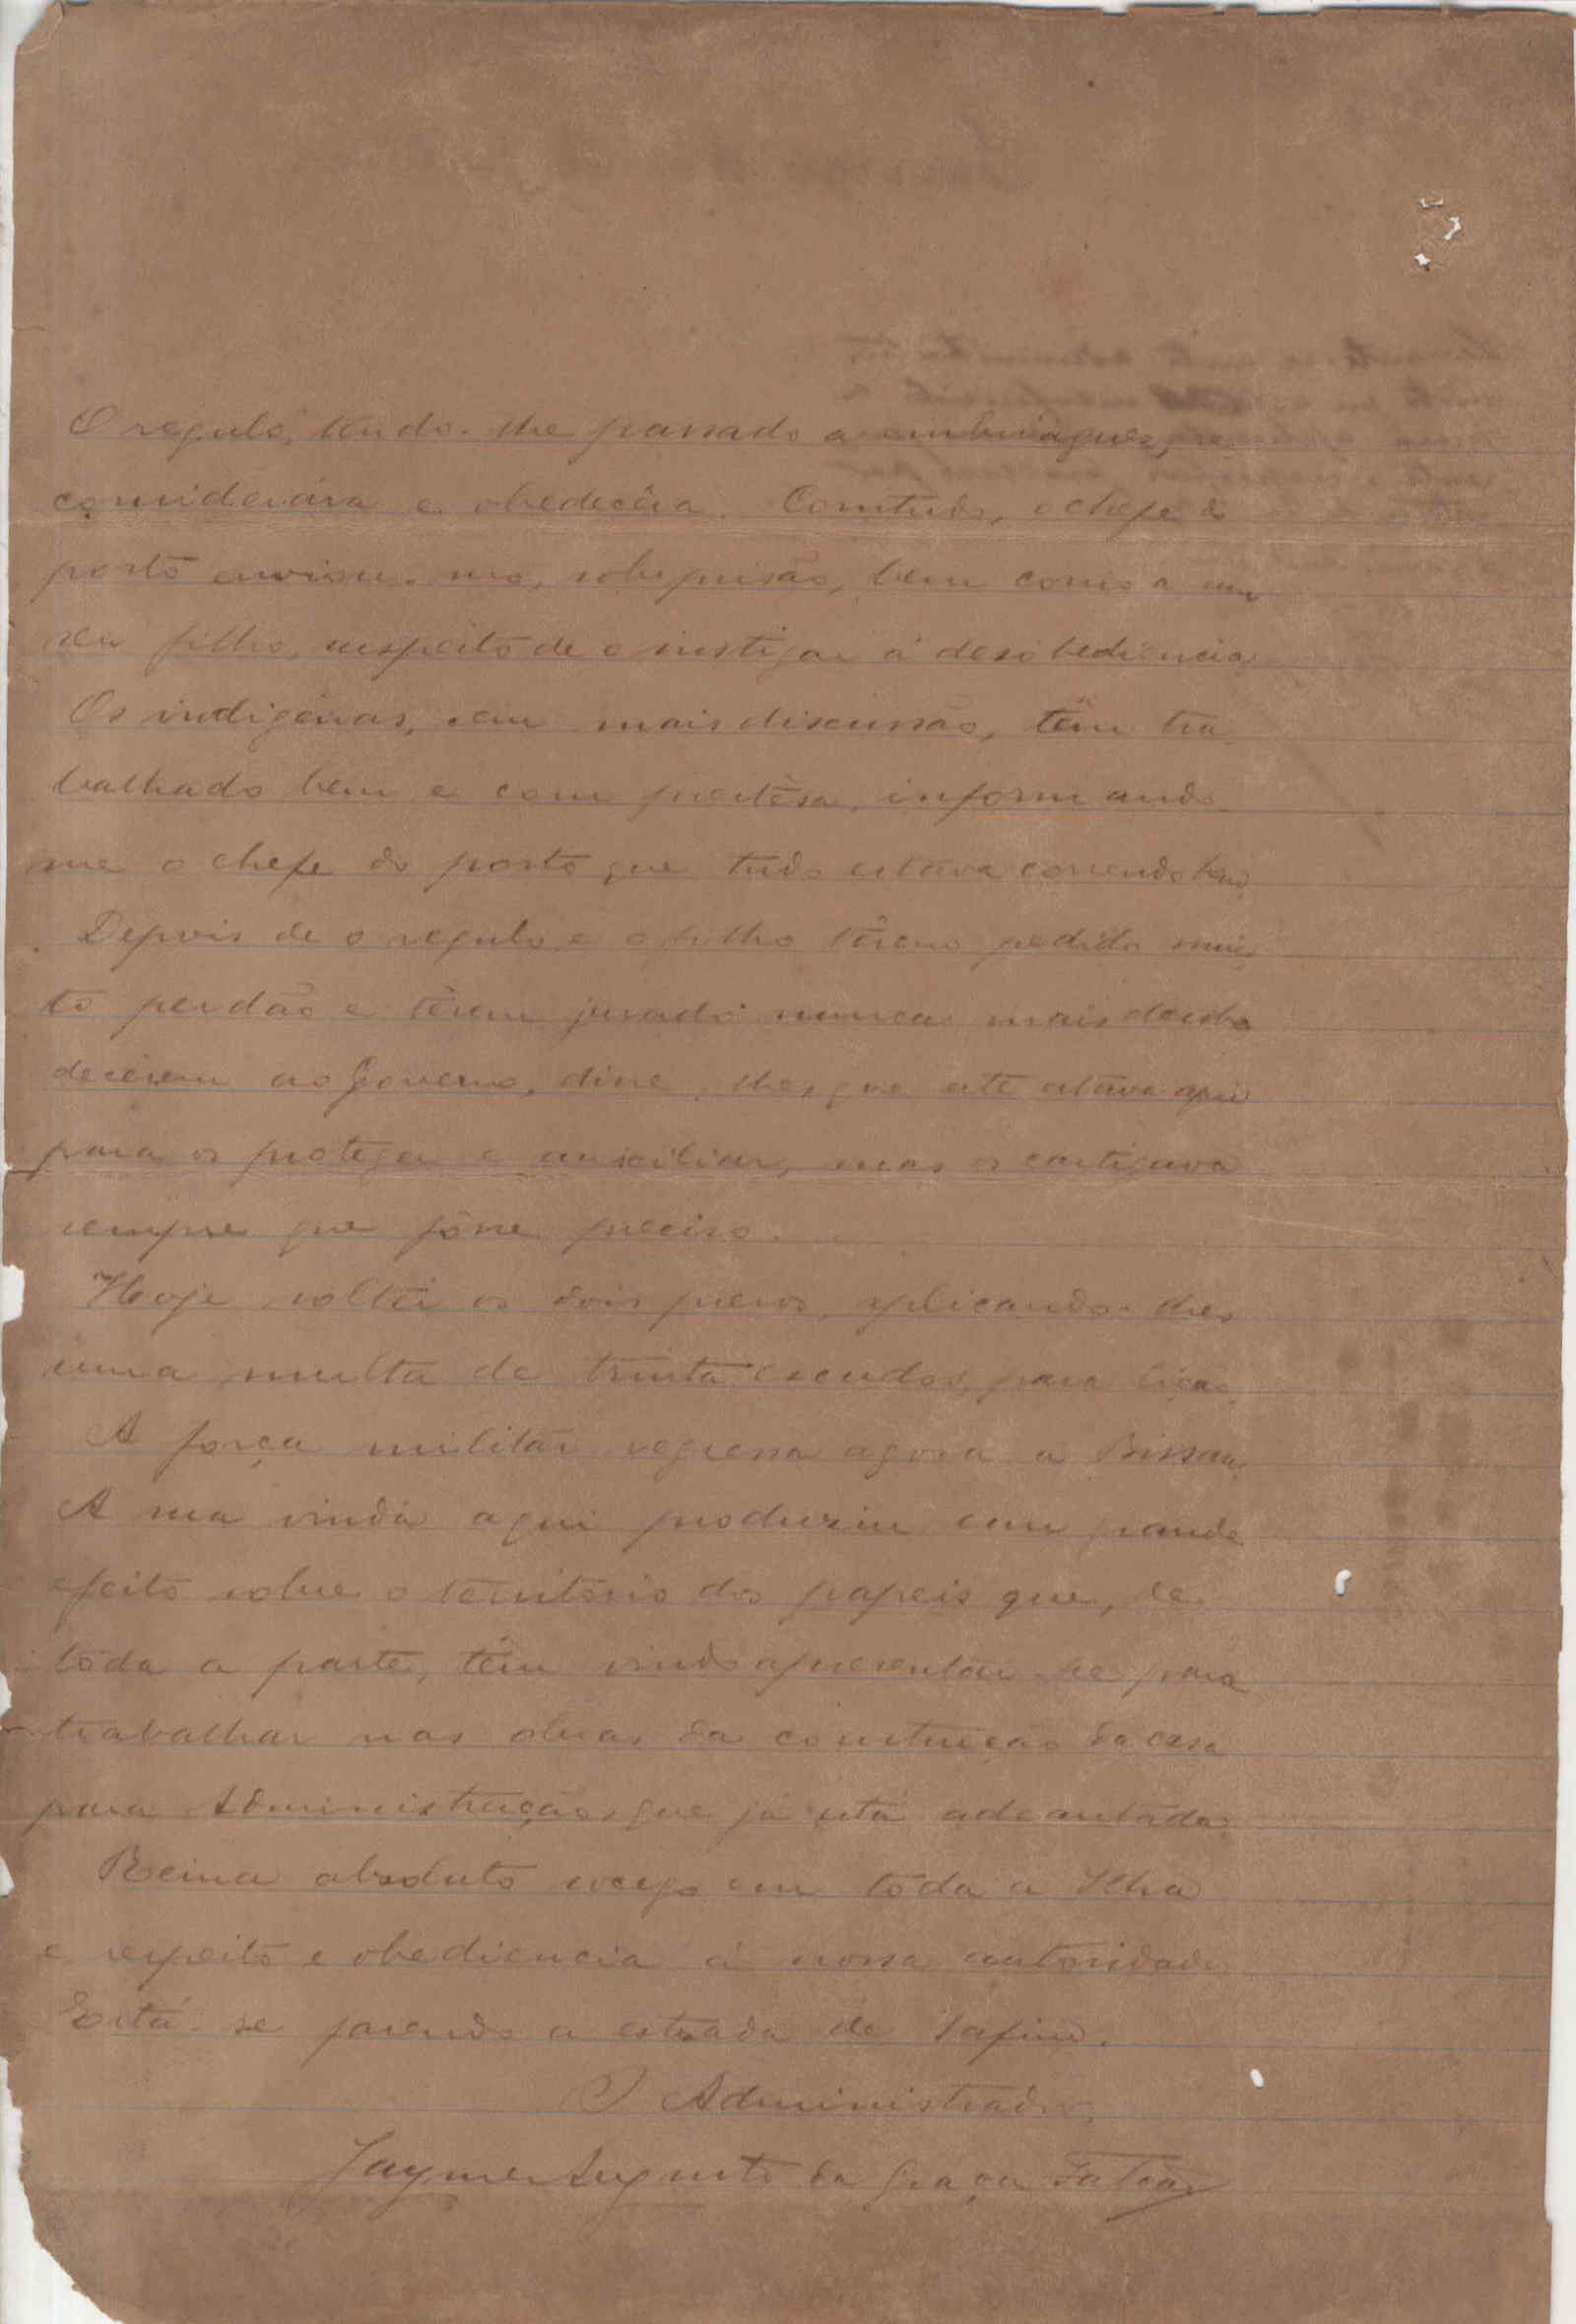 O regulo, tendo-lhe passado a embriaguez,
considerára e obedecêra. Comtudo, o chefe do
posto enviou-mo, sob prisão, bem como a um
seu filho, suspeito de o instigar á desobediencia.
Os indigenas, sem mais discussão, têm tra-
balhado bem e com prestêsa, informando-
me o chefe do posto que tudo estava correndo bem.
Depois de o regulo e o filho têrem pedido mui-
to perdão e têrem jurado nunca mais desobe-
decêrem ao Governo, disse-lhes que até estava aqui
para os proteger e auxiliar, mas os castigava
sempre que fôsse preciso.
Hoje soltei os dois presos, aplicando-lhes
uma multa de trinta escudos, para lição.
A força militar regressa agora a Bissau.
A sua vinda aqui produziu um grande
efeito sobre o território dos papeis que, de
tôda a parte, têm vindo apresentar-se para
trabalhar nas obras da construção da casa
para Administração, que já está adeantada.
Reina absoluto socego em tôda a Ilha
e respeito e obediencia á nossa autoridade.
Está-se fazendo a estrada de Safim.
O Administrador,
Jayme Augusto da Graça Falcão